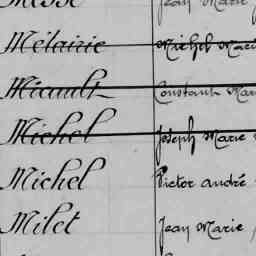 Jean Marie
Mélairie Michel Marie
Micault Constant Mar
Michel Joseph Marie
Michel Victor André
Milet Jean Marie,